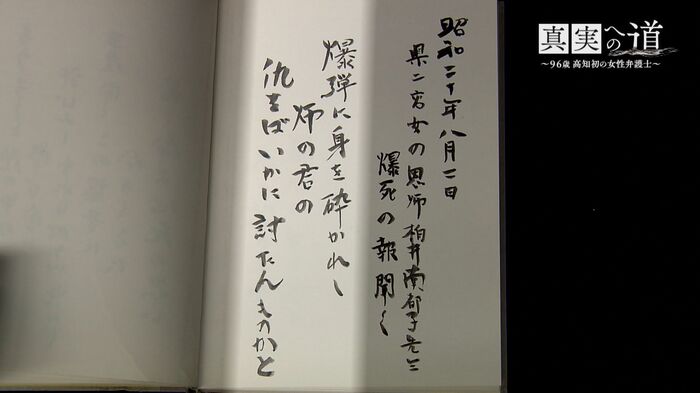 昭和二十年八月二日
県二高女の恩師柏井南都子先生
爆死の報聞く
爆弾に身を砕かれし
師の君の
仇をばいかに討たんものかと
真実への道
～96歳 高知初の女性弁護士～